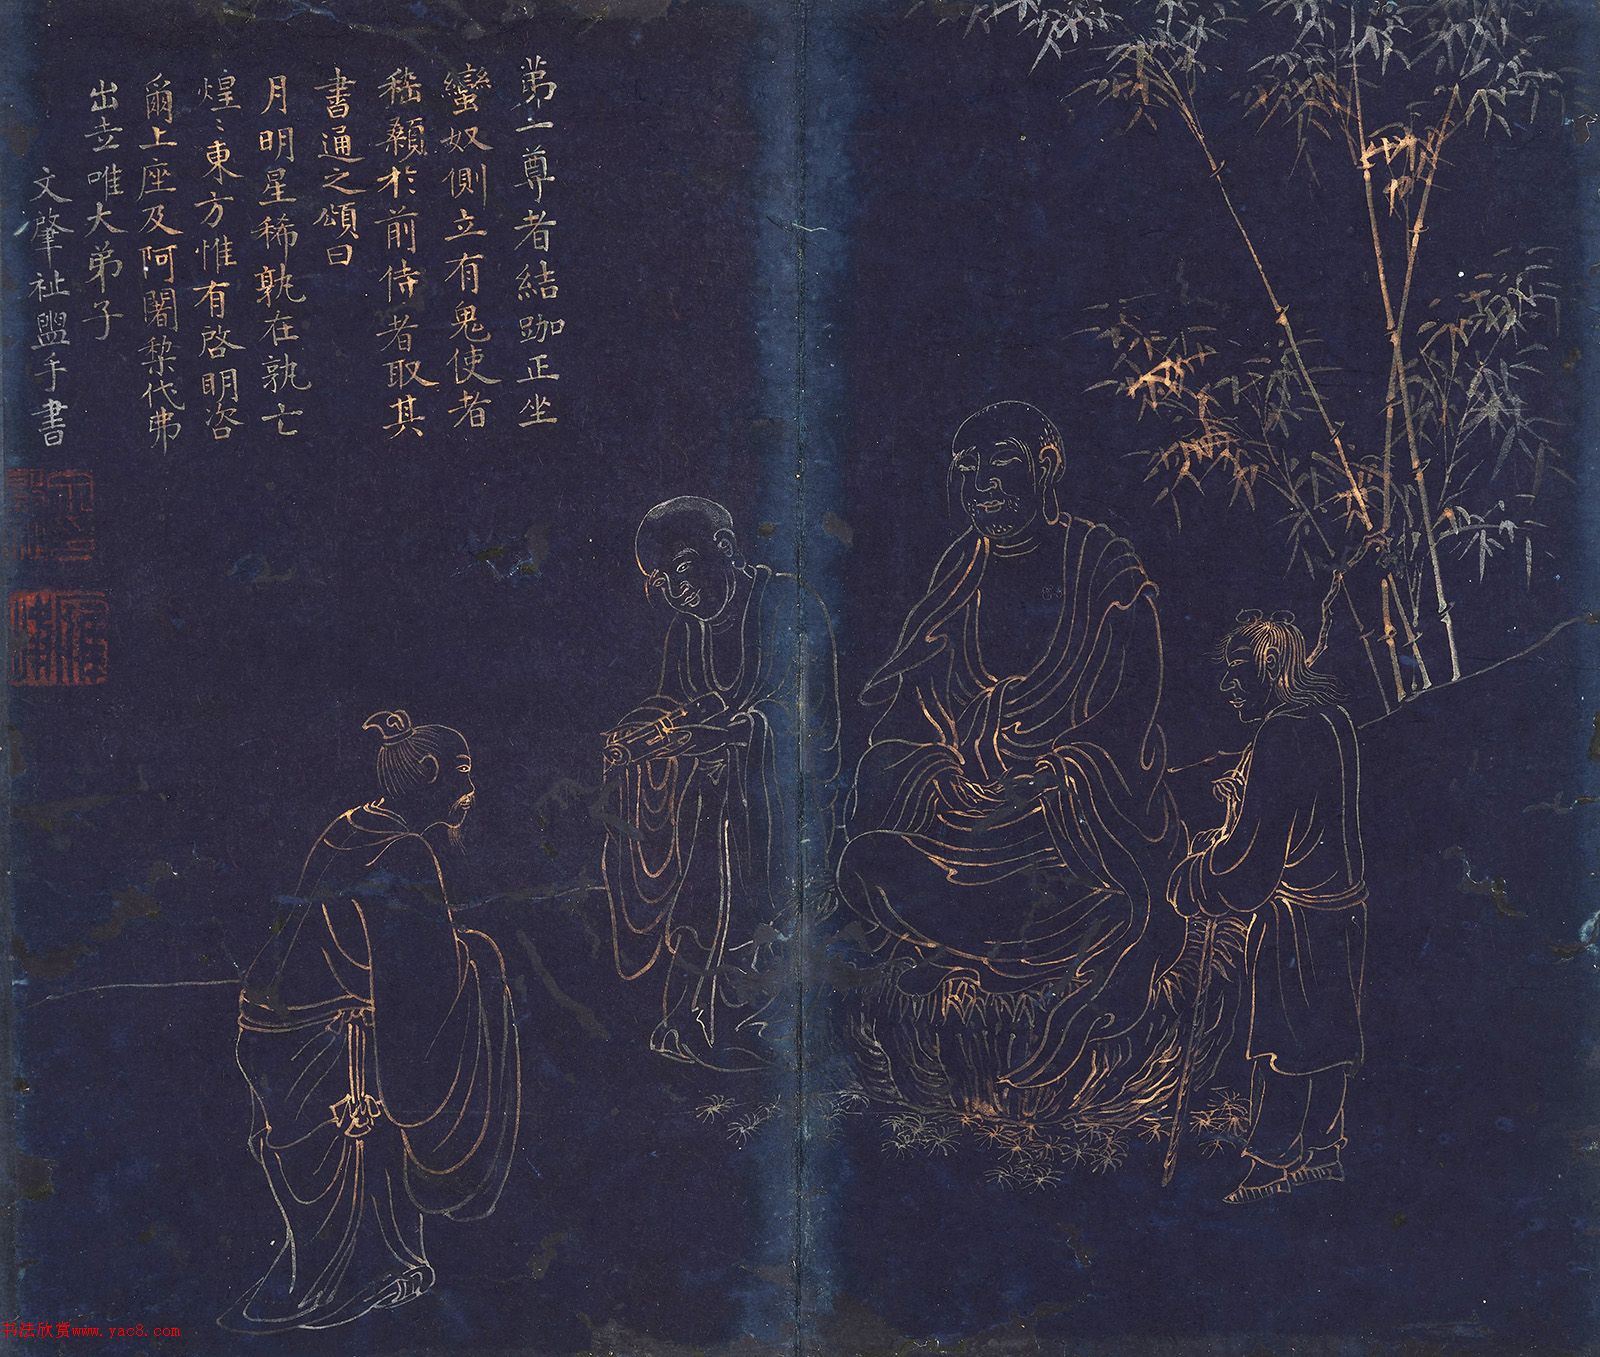 第一尊者結跏正坐
蠻奴側立有鬼使者
嵇顙於前侍者取其
書通之頌曰
月明星稀孰在孰亡
煌〻東方惟有啓明咨
爾上座及阿闍棃代弗
出世唯大弟子
文肇祉盥手書
书法欣赏www.yac8.com